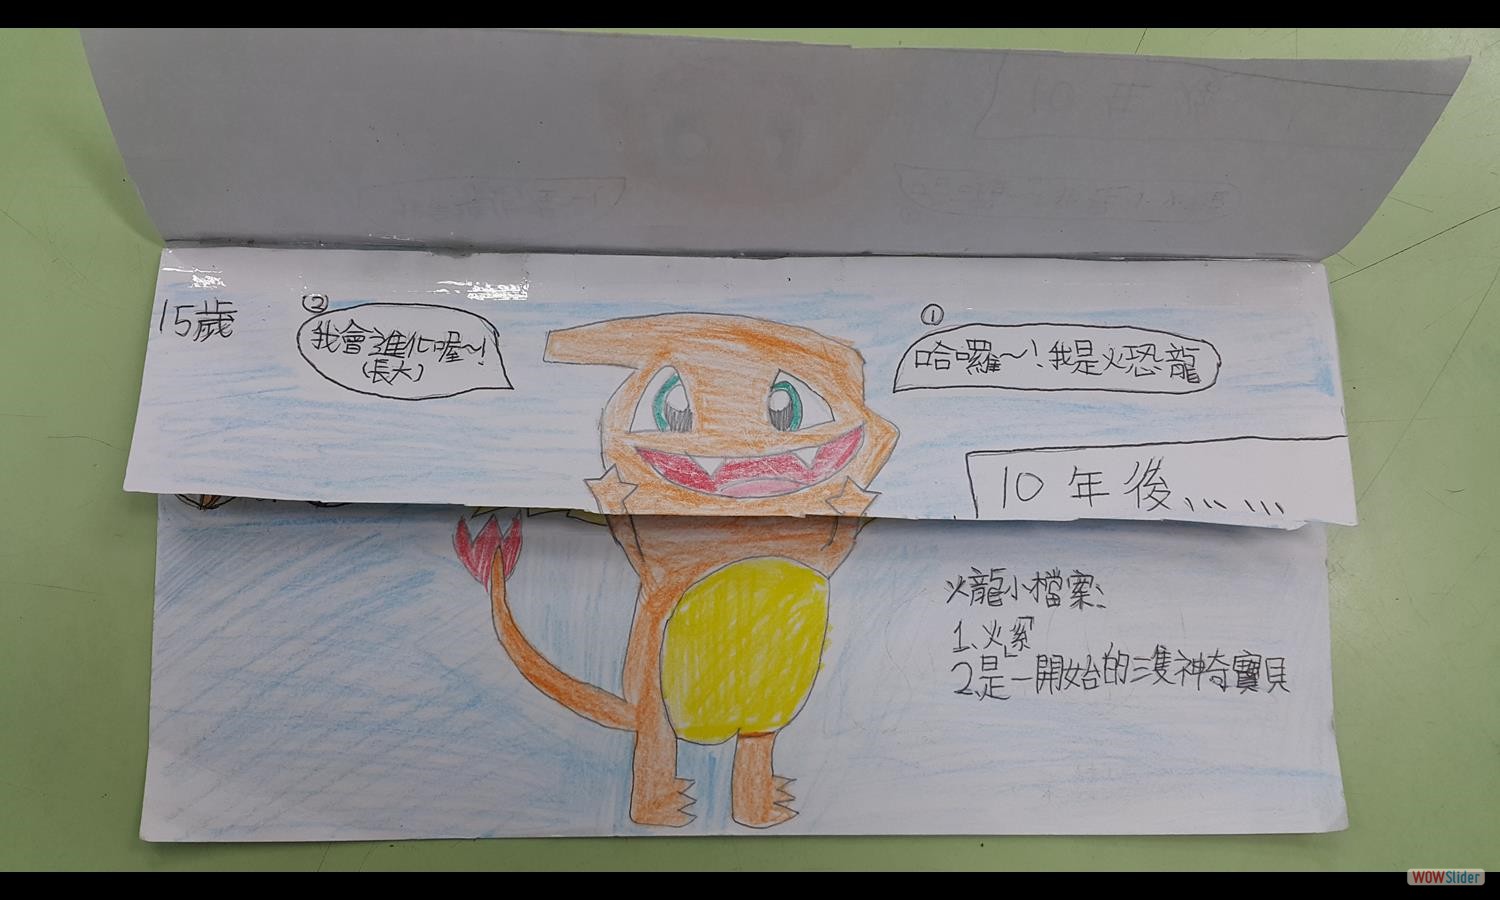 15歲
②
我會進化喔～!
(長大)
①
哈囉～!我是火恐龍
10年後、、、、、、
火龍小檔案:
1、火「系」
2、是一開始的三隻神奇寶貝
WOWSlider